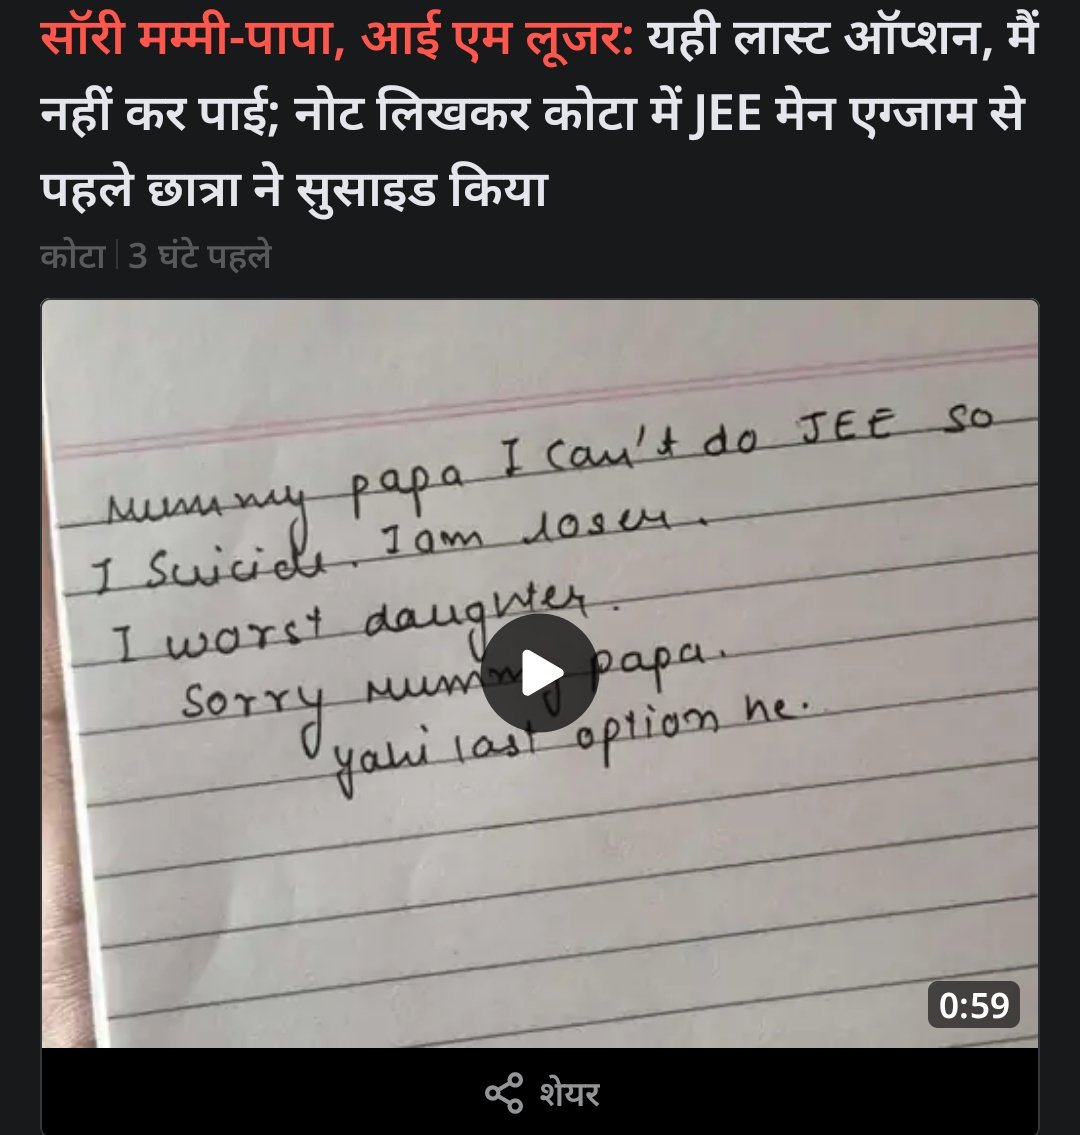 सॉरी मम्मी-पापा, आई एम लूजर: यही लास्ट ऑप्शन, मैं
नहीं कर पाई; नोट लिखकर कोटा में JEE मेन एग्जाम से
पहले छात्रा ने सुसाइड किया
कोटा | 3 घंटे पहले
Mummy papa I can't do JEE so
I suicide. I am loser.
I worst daughter.
Sorry mummy papa.
yahi last option he.
0:59
शेयर